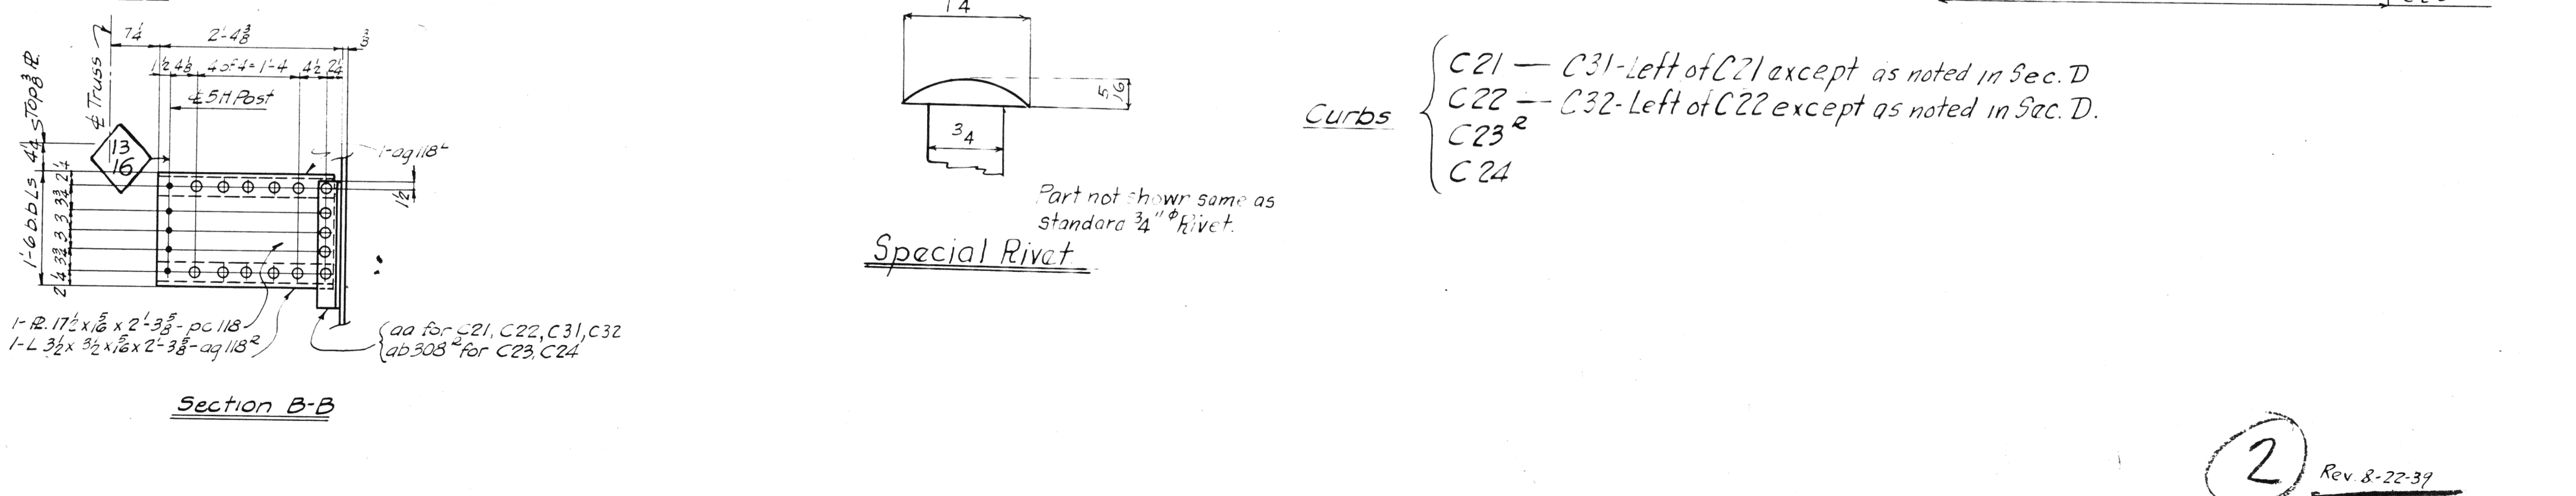 7¼ 2'-4⅜
1½ 4⅛ 4 of 4 = 1'-4 4½ 2¼
℄ 5H Post
℄ Truss
4¼ sTop⅜ ℞
13
16
1-ag118ᴸ
1½
1'-6 b.b Ls
2¼ 3¾ 3 3 3¾ 2¼
1-℞. 17½ x 5/16 x 2'-3⅝ - pc118
1-L 3½ x 3½ x 5/16 x 2'-3⅝ - ag118ᴿ
aa for C21, C22, C31, C32
ab308ᴿ for C23, C24
Section B-B
5/16
¾
Part not shown same as
standard ¾"ᶲ Rivet.
Special Rivet
Curbs
C21 — C31-Left of C21 except as noted in Sec. D
C22 — C32-Left of C22 except as noted in Sec. D.
C23ᴿ
C24
2
Rev. 8-22-39